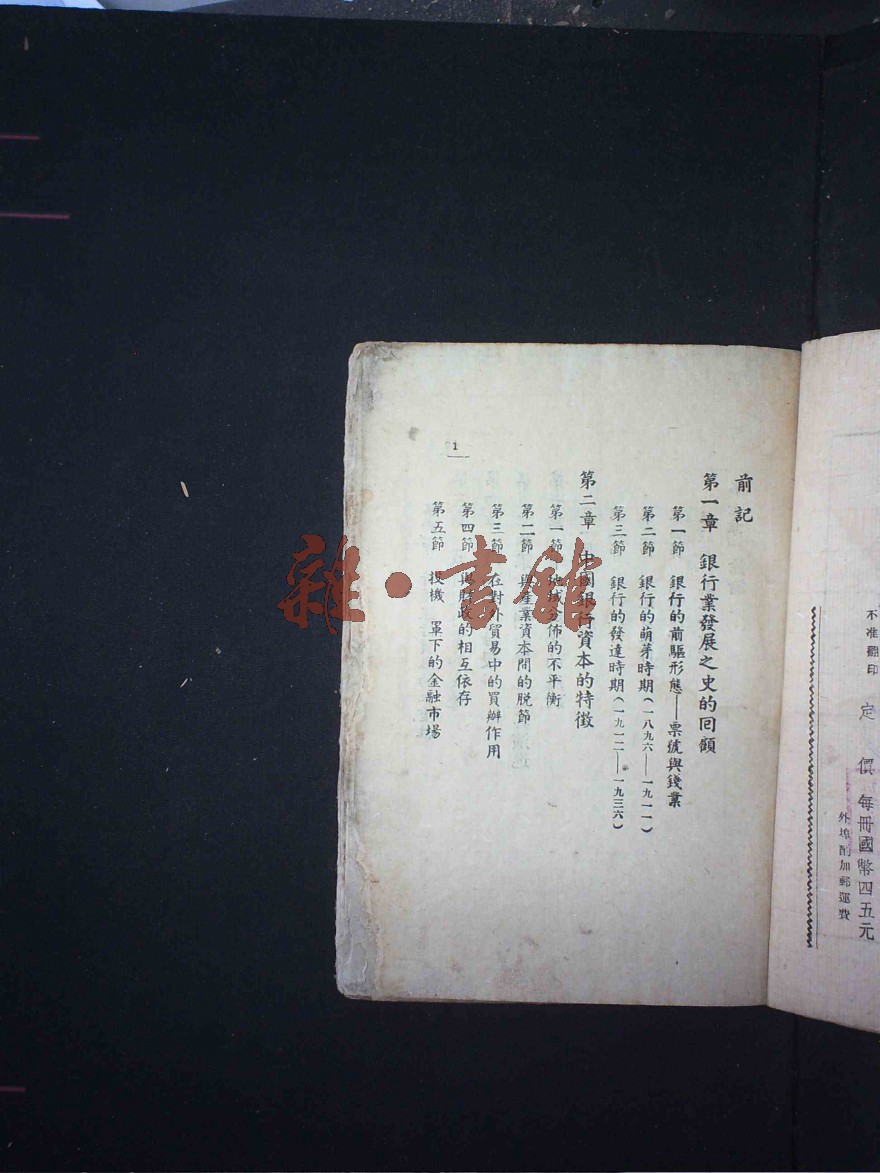 不准翻印
定 價 每冊國幣四五元
外埠酌加郵運費
前記
第一章 銀行業發展之史的回顧
第一節 銀行的前驅形態——票號與錢業
第二節 銀行的萌芽時期(一八九六——一九一一)
第三節 銀行的發達時期(一九一二——一九三六)
第二章 中國銀行資本的特徵
第一節 地域分佈的不平衡
第二節 與產業資本間的脫節
第三節 在對外貿易中的買辦作用
第四節 與財政的相互依存
第五節 投機 單下的金融市場
1
雜·書館